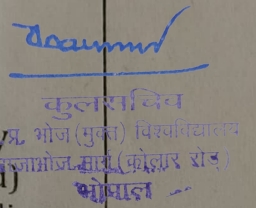 कुलसचिव
प्र. भोज (मुक्त) विश्वविद्यालय
राजाभोज मार्ग (कोलार रोड)
भोपाल